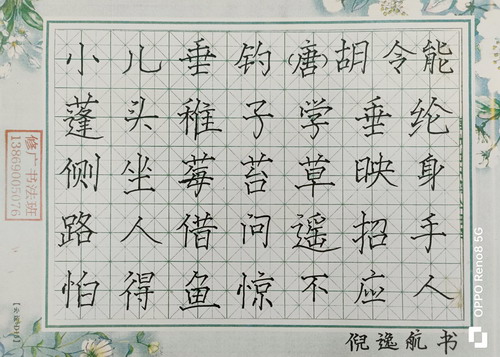 小儿垂钓(唐)胡令能
蓬头稚子学垂纶
侧坐莓苔草映身
路人借问遥招手
怕得鱼惊不应人
倪逸航书
修广书法班
13869005076
OPPO Reno8 5G